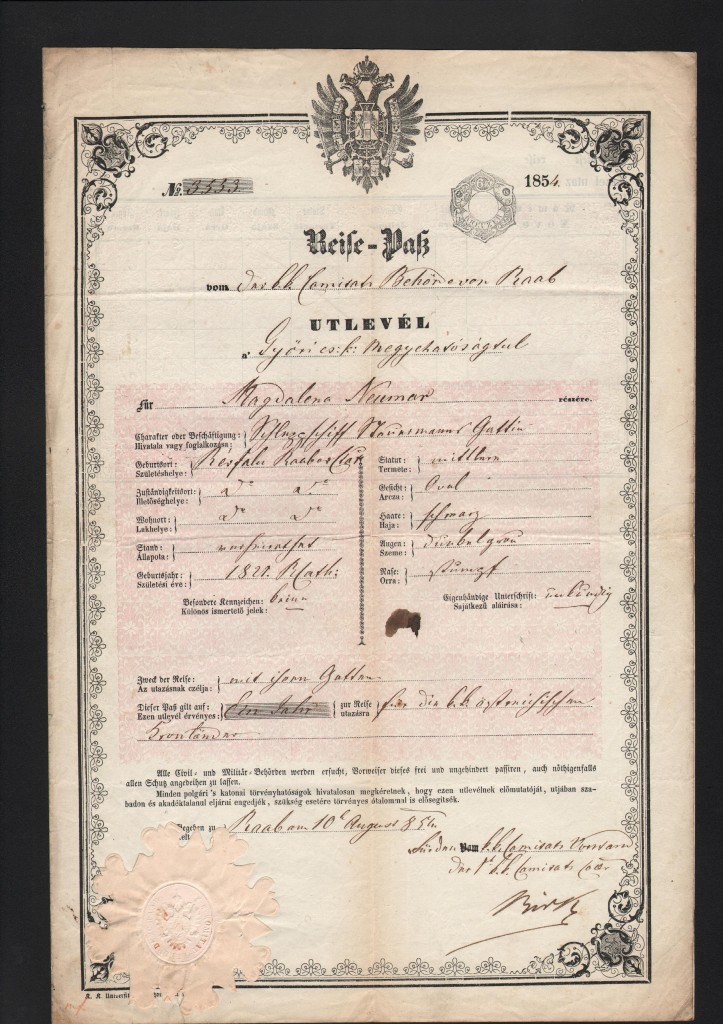 № 3553.
1854.
Reise-Paß
vom der kk Comitats Behörde von Raab
UTLEVÉL
a' Győri cs: k: megyehatóságtul
Für Magdalena Neumar részére.
Charakter oder Beschäftigung: Gattin
Hivatala vagy foglalkozása:
Geburtsort: Révfalu Raaber
Születéshelye:
Zuständigkeitsort: dto dto
Illetőséghelye:
Wohnort: dto dto
Lakhelye:
Stand: verheirathet
Állapota:
Geburtsjahr: Kath:
Születési éve:
Besondere Kennzeichen: keine
Különös ismertető jelek:
Statur: mittlere
Termete:
Gesicht: Oval
Arcza:
Haare: schwarz
Haja:
Augen: dunkelgrau
Szeme:
Nase: stumpf
Orra:
Eigenhändige Unterschrift: unkündig
Sajátkezű aláirása:
Zweck der Reise: mit ihren Gatten
Az utazásnak czélja:
Dieser Paß gilt auf: Ein Jahr zur Reise für die k.k. östreichischen
Ezen utlevél érvényes: utazásra
Kronländer
Alle Civil- und Militär-Behörden werden ersucht, Vorweiser dieses frei und ungehindert passiren, auch nöthigenfalls
allen Schutz angedeihen zu lassen.
Minden polgári 's katonai törvényhatóságok hivatalosan megkéretnek, hogy ezen utlevélnek előmutatóját, utjában sza-
badon és akadéktalanul eljárni engedjék, szükség esetére törvényes ótalommal is elősegitsék.
Gegeben zu Raab am 10t August 854
Für den Vom k.k. Comitats Vorstand
der k.k. Comitats